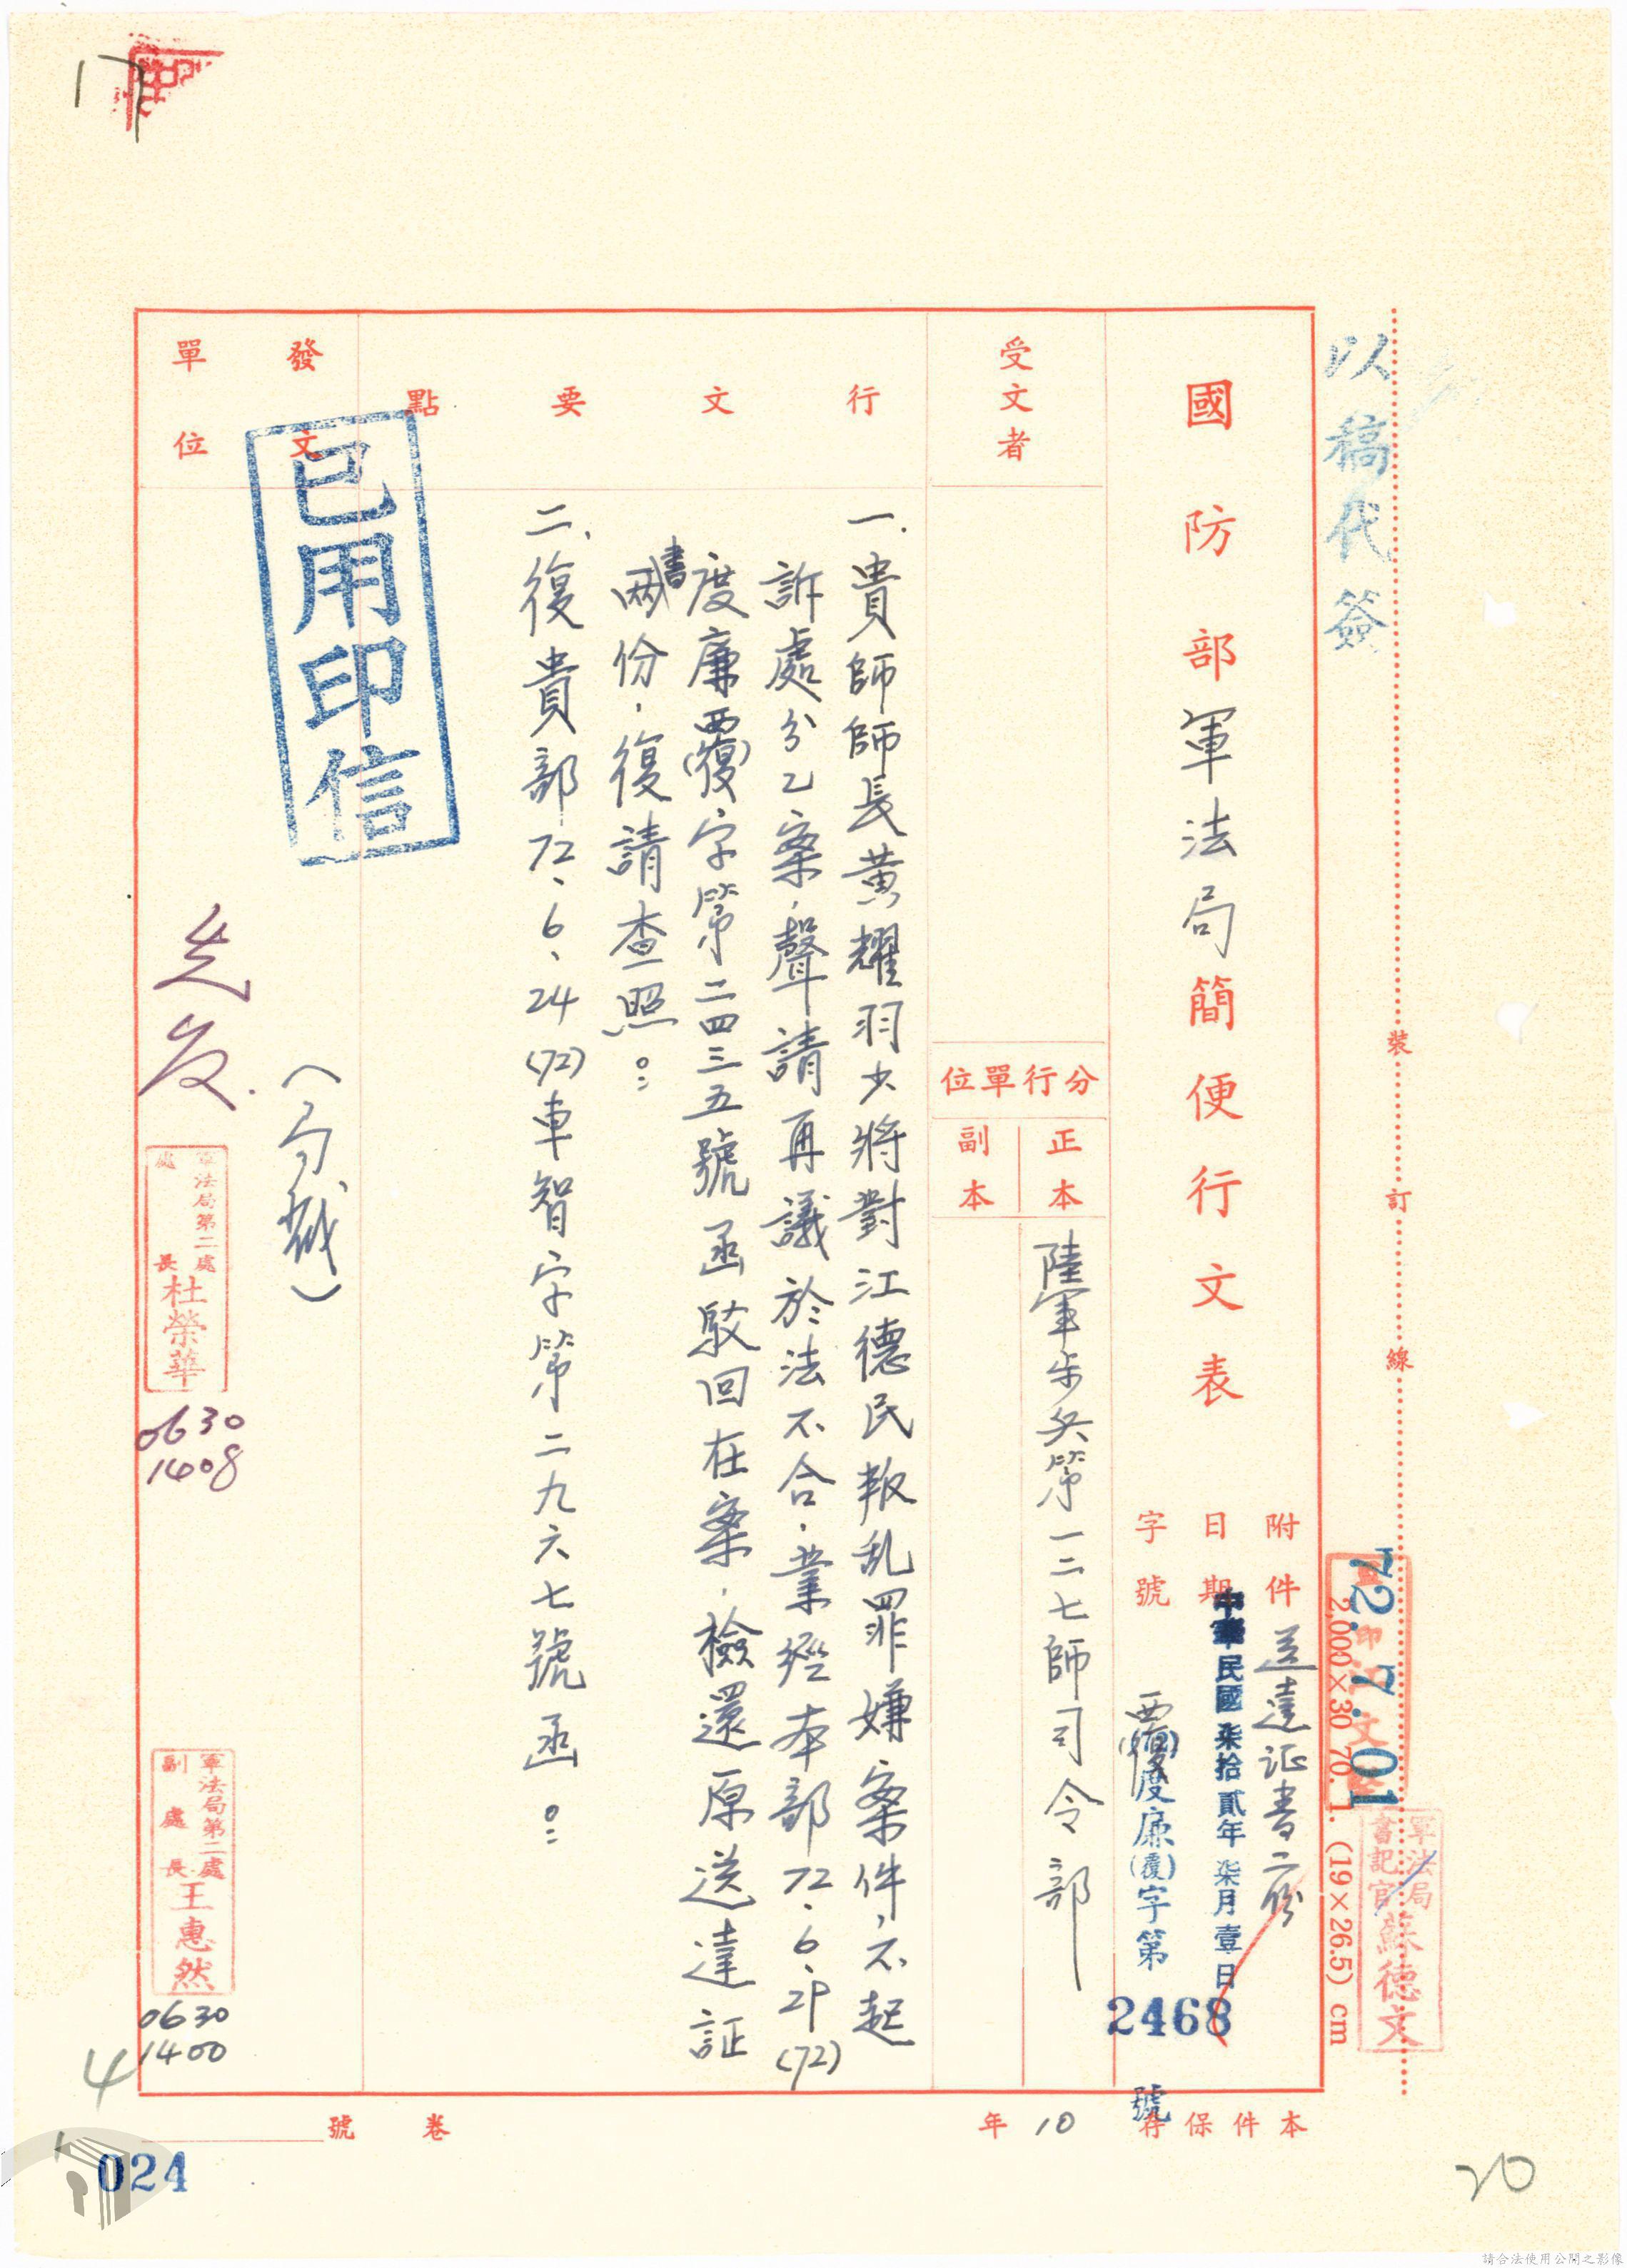 以稿代簽
國防部軍法局簡便行文表
附件 送達证書二份
日期 中華民國柒拾貳年柒月壹日
字號 度廉(覆)字第2468號
受文者
分行單位
正本
副本
陸軍步兵第一二七師司令部
行文要點
一、貴師師長黃耀羽少將對江德民叛乱罪嫌案件,不起
訴處分乙案,聲請再議於法不合,業經本部72、6、29(72)
度廉(覆)字第二四三五號函駁回在案,檢還原送達証
書
兩份,復請查照。
二、復貴部72、6、24(72)車智字第二九六七號函。
發文單位
已用印信
軍法局第二處
處長
杜榮華
0630
1408
軍法局第二處
副處長
王惠然
0630
1400
裝 訂 線
72.7.01
2,000×30 70. 1. (19×26.5) cm
軍法局
書記官
蘇德文
本件保存10年
卷號
4
024
20
17
請合法使用公開之影像